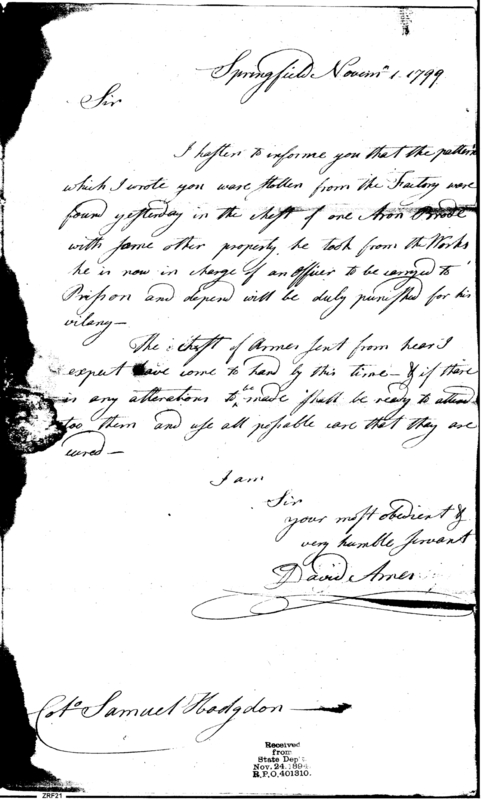 Springfield Novemr 1. 1799
Sir
I hasten to informe you that the pattern
which I wrote you ware stollen from the Factory ware
found yesterday in the chest of one Aron
with some other property he took from the Works
he is now in charge of an Officer to be carryed to
Prisson and depend will be duly punished for his
vilany—
The chest of Armes sent from hear I
expect have come to hand by this time— & if there
is any alterations to be made shall be ready to attend
too them and use all possable care that they are
cured—
I am
Sir
your most obedient &
very humble servant
David Ames
Colo Samuel Hodgdon
Received
from
State Dep't.
Nov. 24, 1894
R.P.O. 401310.
ZRF21